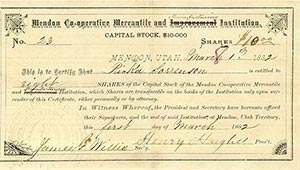 Manufacturing
Mendon Co-operative Mercantile and Improvement Institution.
CAPITAL STOCK, $10,000
No. 23 SHARES
MENDON, UTAH, March 1st 1882
This is to Certify That Sorenson is entitled to
Eight SHARES of the Capital Stock of the Mendon Co-operative Mercantile
and Institution, which Shares are transferable on the books of the Institution only upon sur-
render of this Certificate, either personally or by attorney.
In Witness Whereof, the President and Secretary have hereunto affixed
their Signatures, and the seal of said Institution, at Mendon, Utah Territory,
this first day of March 1882
James G Willie Sec'y. Henry Hughes Pres't.